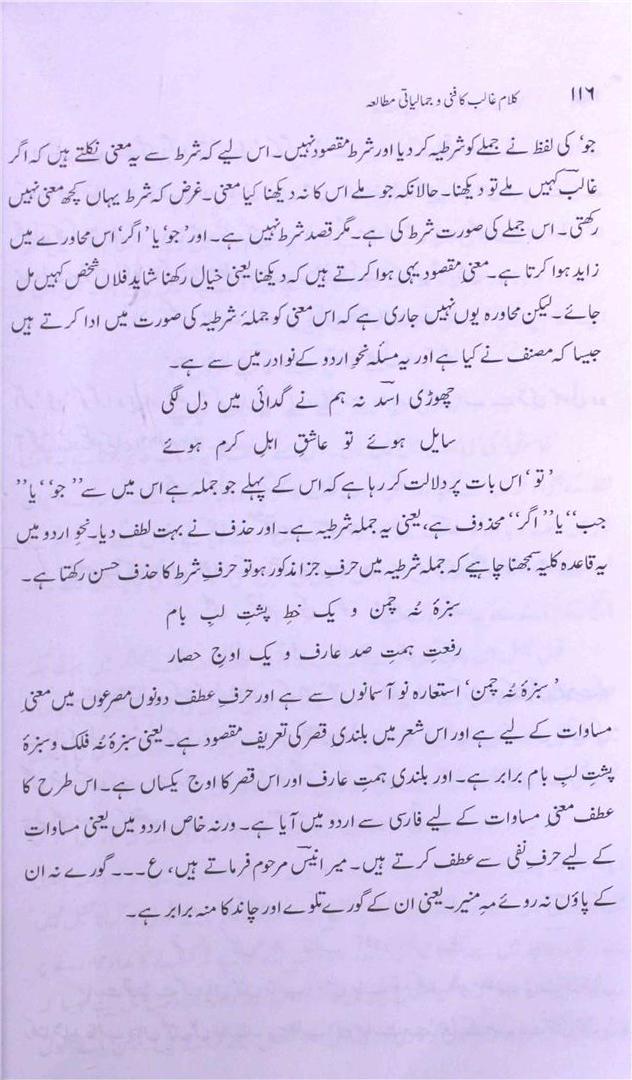 ۱۱۶ کلام غالب کا فنی و جمالیاتی مطالعہ
جو‘ کی لفظ نے جملے کو شرطیہ کر دیا اور شرط مقصود نہیں۔ اس لیے کہ شرط سے یہ معنی نکلتے ہیں کہ اگر
غالبؔ کہیں ملے تو دیکھنا۔ حالانکہ جو ملے اس کا نہ دیکھنا کیا معنی۔ غرض کہ شرط یہاں کچھ معنی نہیں
رکھتی۔ اس جملے کی صورت شرط کی ہے۔ مگر قصد شرط نہیں ہے۔ اور ’جو‘ یا ’اگر‘ اس محاورے میں
زاید ہوا کرتا ہے۔ معنیِ مقصود یہی ہوا کرتے ہیں کہ دیکھنا یعنی خیال رکھنا شاید فلاں شخص کہیں مل
جائے۔ لیکن محاورہ یوں نہیں جاری ہے کہ اس معنی کو جملۂ شرطیہ کی صورت میں ادا کرتے ہیں
جیسا کہ مصنف نے کیا ہے اور یہ مسئلہ نحوِ اردو کے نوادر میں سے ہے۔
چھوڑی اسدؔ نہ ہم نے گدائی میں دل لگی
سایل ہوئے تو عاشقِ اہلِ کرم ہوئے
’تو‘ اس بات پر دلالت کر رہا ہے کہ اس کے پہلے جو جملہ ہے اس میں سے ’’جو‘‘ یا ’’
جب‘‘ یا ’’اگر‘‘ محذوف ہے، یعنی یہ جملہ شرطیہ ہے۔ اور حذف نے بہت لطف دیا۔ نحوِ اردو میں
یہ قاعدہ کلیہ سمجھنا چاہیے کہ جملہ شرطیہ میں حرفِ جزا مذکور ہو تو حرفِ شرط کا حذف حسن رکھتا ہے۔
سبزۂ نُہ چمن و یک خطِ پشتِ لبِ بام
رفعتِ ہمتِ صد عارف و یک اوجِ حصار
’سبزۂ نُہ چمن‘ استعارہ نو آسمانوں سے ہے اور حرفِ عطف دونوں مصرعوں میں معنیِ
مساوات کے لیے ہے اور اس شعر میں بلندیِ قصر کی تعریف مقصود ہے۔ یعنی سبزۂ نُہ فلک و سبزۂ
پشتِ لبِ بام برابر ہے۔ اور بلندیِ ہمتِ عارف اور اس قصر کا اوج یکساں ہے۔ اس طرح کا
عطف معنیِ مساوات کے لیے فارسی سے اردو میں آیا ہے۔ ورنہ خاص اردو میں یعنی مساوات
کے لیے حرفِ نفی سے عطف کرتے ہیں۔ میر انیسؔ مرحوم فرماتے ہیں، ع۔۔۔ گورے نہ ان
کے پاؤں نہ روئے مہِ منیر۔ یعنی ان کے گورے تلوے اور چاند کا منہ برابر ہے۔